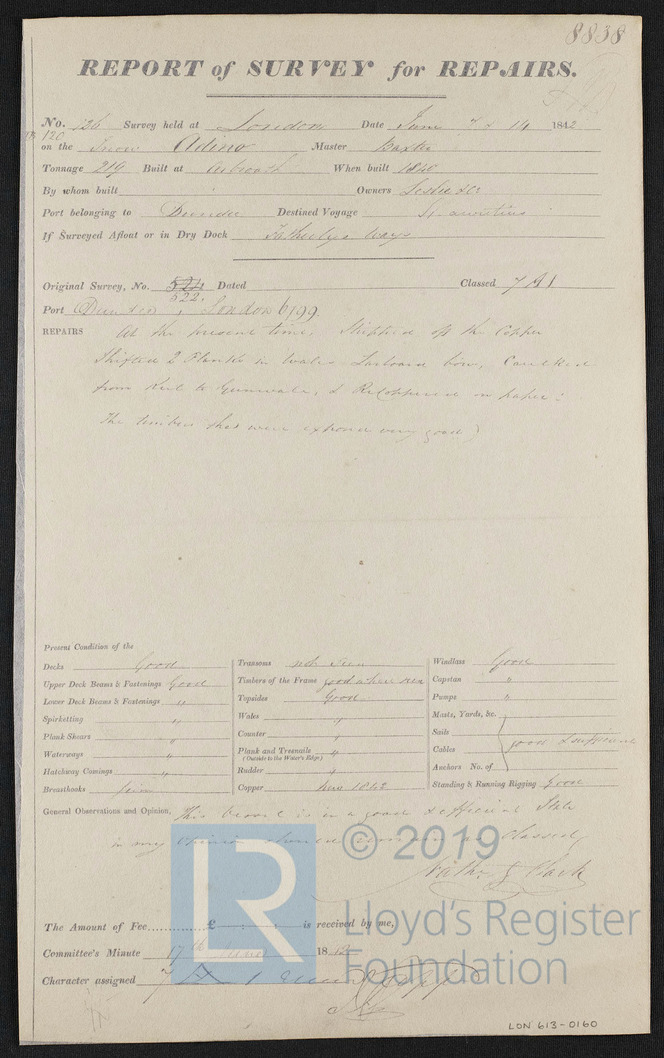 8838
REPORT of SURVEY for REPAIRS.
No. 126 Survey held at London Date June 14 1842
120
on the Snow Adino Master Baxter
Tonnage 219 Built at Arbroath When built 1840
By whom built Owners Leslie & Co
Port belonging to Dundee Destined Voyage
If Surveyed Afloat or in Dry Dock Ways
Original Survey, No. 524 Dated Classed 7 A1
522.
Port Dundee ; London 6199
REPAIRS At the present time. Stripped off the Copper
Shifted 2 Planks in Wales Larboard bow, Caulked
from Keel to Gunwale, & ReCoppered on paper :
The timbers that were exposed very good )
Present Condition of the
Decks Good
Upper Deck Beams & Fastenings Good
Lower Deck Beams & Fastenings "
Spirketting "
Plank Shears "
Waterways "
Hatchway Comings "
Breasthooks
Transoms not seen
Timbers of the Frame good where seen
Topsides Good
Wales "
Counter "
Plank and Treenails "
(Outside to the Water's Edge)
Rudder "
Copper new 1842
Windlass Good
Capstan "
Pumps "
Masts, Yards, &c.
Sails
Cables good & sufficient
Anchors No. of
Standing & Running Rigging Good
General Observations and Opinion, This vessel is in a good & efficient State
in my opinion classed
© 2019
Clark
Lloyd's Register
Foundation
LR
The Amount of Fee............£ : : is received by me,
Committee's Minute 17th June 1842
Character assigned 7
LON 613-0160